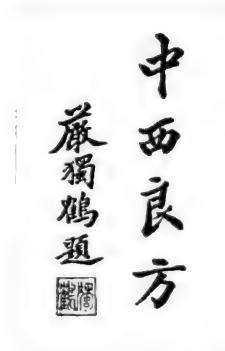 中西良方
嚴獨鶴題